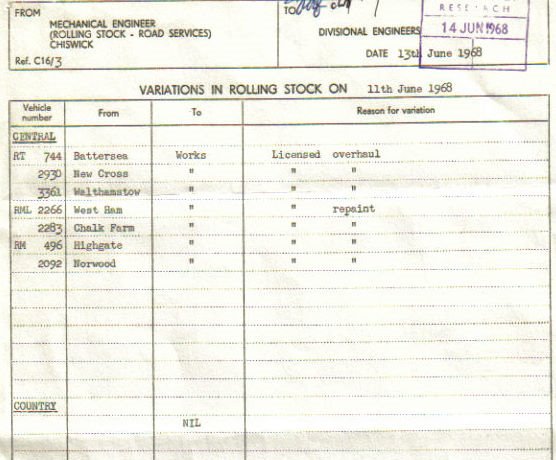 FROM
MECHANICAL ENGINEER
(ROLLING STOCK - ROAD SERVICES)
CHISWICK
Ref. C16/3
TO
DIVISIONAL ENGINEERS
DATE 13th June 1968
RESEARCH
14 JUN 1968
VARIATIONS IN ROLLING STOCK ON 11th June 1968
Vehicle number From To Reason for variation
CENTRAL
RT 744 Battersea Works Licensed overhaul
2930 New Cross " " "
3361 Walthamstow " " "
RML 2266 West Ham " " repaint
2283 Chalk Farm " " "
RM 496 Highgate " " "
2092 Norwood " " "
COUNTRY
NIL